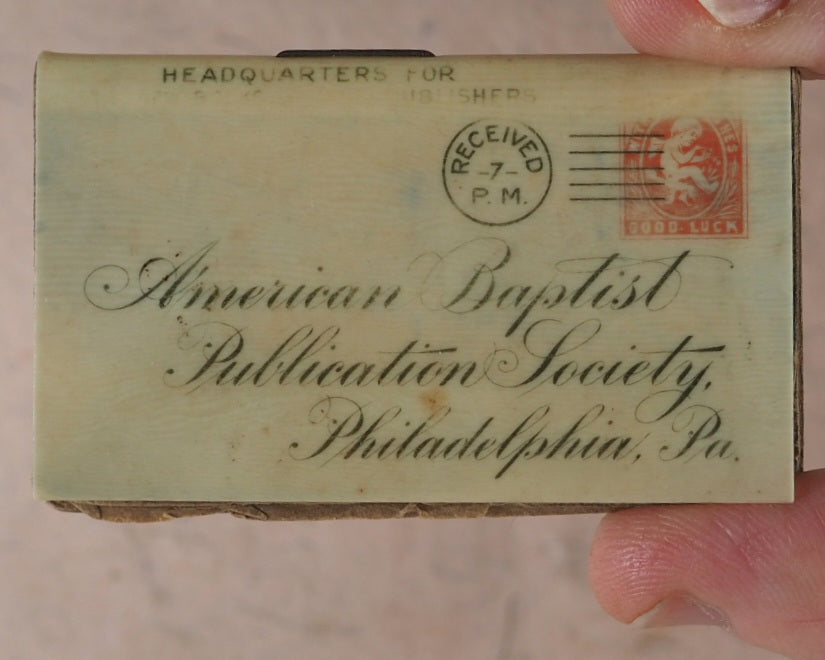 HEADQUARTERS FOR
RECEIVED
-7-
P. M.
GOOD-LUCK
American Baptist
Publication Society,
Philadelphia, Pa.